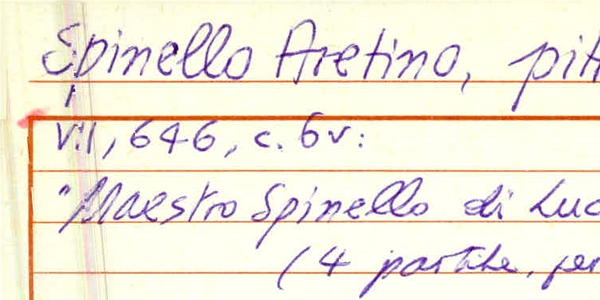 Spinello Aretino, pit
VII, 646, c. 6v:
"Maestro Spinello di Luc
(4 partite, per